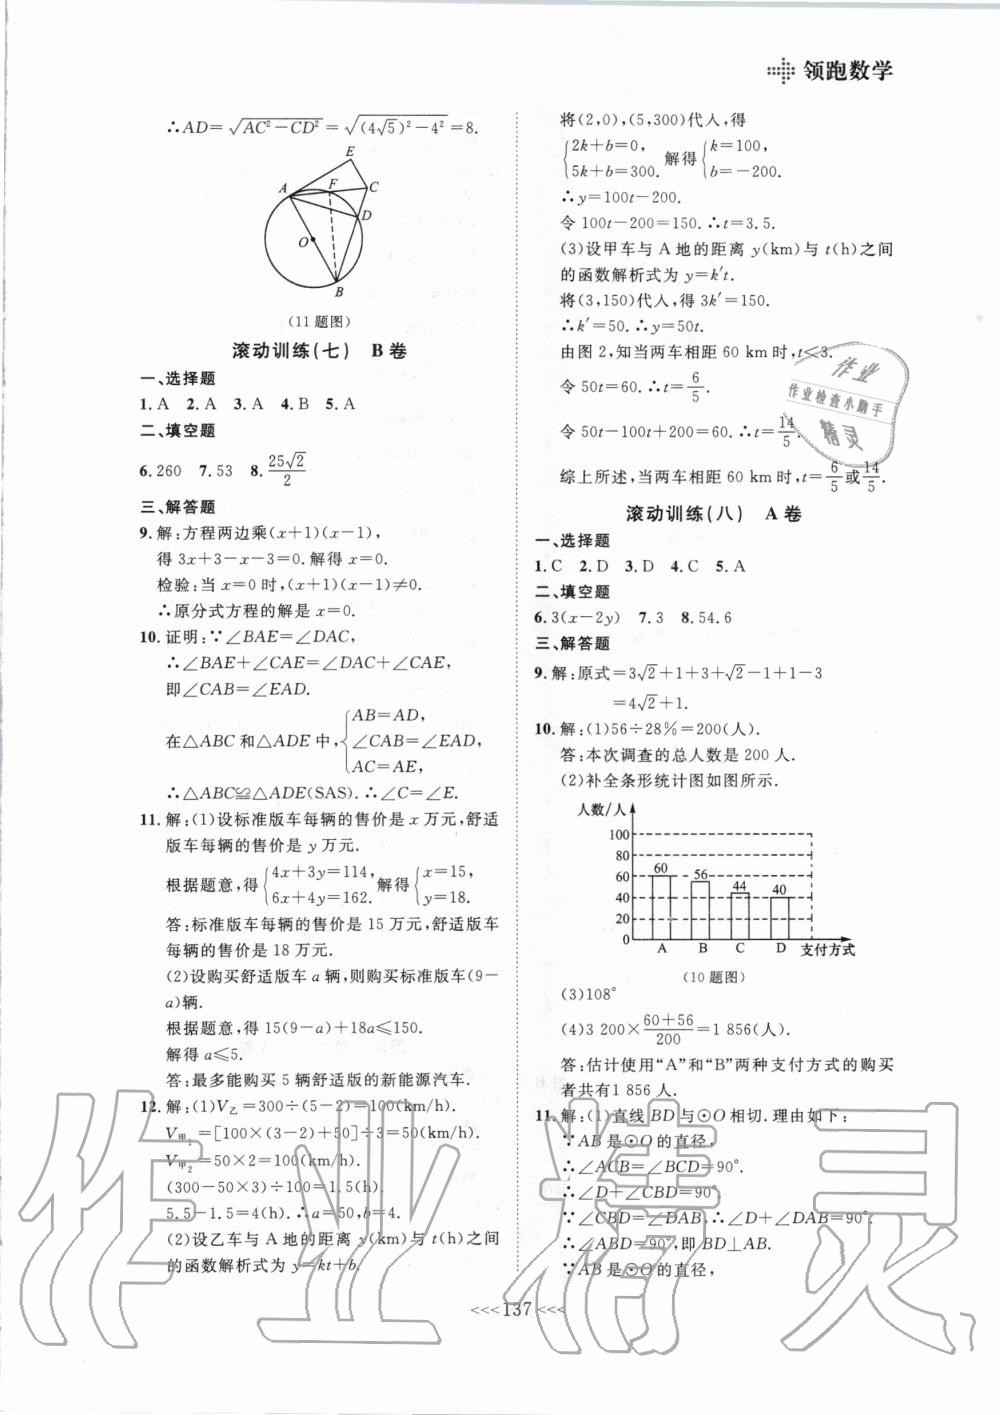 领跑数学
∴AD=√(AC²-CD²)=√((4√5)²-4²)=8.
E
A
F
C
D
O
B
(11题图)
滚动训练(七) B卷
一、选择题
1.A 2.A 3.A 4.B 5.A
二、填空题
6.260 7.53 8.25√2/2
三、解答题
9.解:方程两边乘(x+1)(x-1),
得3x+3-x-3=0.解得x=0.
检验:当x=0时,(x+1)(x-1)≠0.
∴原分式方程的解是x=0.
10.证明:∵∠BAE=∠DAC,
∴∠BAE+∠CAE=∠DAC+∠CAE,
即∠CAB=∠EAD.
在△ABC和△ADE中,{AB=AD,
∠CAB=∠EAD,
AC=AE,
∴△ABC≌△ADE(SAS).∴∠C=∠E.
11.解:(1)设标准版车每辆的售价是x万元,舒适
版车每辆的售价是y万元.
根据题意,得{4x+3y=114, 6x+4y=162. 解得{x=15, y=18.
答:标准版车每辆的售价是15万元,舒适版车
每辆的售价是18万元.
(2)设购买舒适版车a辆,则购买标准版车(9-
a)辆.
根据题意,得15(9-a)+18a≤150.
解得a≤5.
答:最多能购买5辆舒适版的新能源汽车.
12.解:(1)V乙=300÷(5-2)=100(km/h).
V甲1=[100×(3-2)+50]÷3=50(km/h).
V甲2=50×2=100(km/h).
(300-50×3)÷100=1.5(h).
5.5-1.5=4(h).∴a=50,b=4.
(2)设乙车与A地的距离y(km)与t(h)之间
的函数解析式为y=kt+b.
将(2,0),(5,300)代入,得
{2k+b=0, 5k+b=300. 解得{k=100, b=-200.
∴y=100t-200.
令100t-200=150.∴t=3.5.
(3)设甲车与A地的距离y(km)与t(h)之间
的函数解析式为y=k′t.
将(3,150)代入,得3k′=150.
∴k′=50.∴y=50t.
由图2,知当两车相距60 km时,t≤3.
令50t=60.∴t=6/5.
令50t-100t+200=60.∴t=14/5.
综上所述,当两车相距60 km时,t=6/5或14/5.
滚动训练(八) A卷
一、选择题
1.C 2.D 3.D 4.C 5.A
二、填空题
6.3(x-2y) 7.3 8.54.6
三、解答题
9.解:原式=3√2+1+3+√2-1+1-3
=4√2+1.
10.解:(1)56÷28%=200(人).
答:本次调查的总人数是200人.
(2)补全条形统计图如图所示.
人数/人
100
80
60
40
20
0
60
56
44
40
A B C D 支付方式
(10题图)
(3)108°
(4)3 200×(60+56)/200=1 856(人).
答:估计使用“A”和“B”两种支付方式的购买
者共有1 856人.
11.解:(1)直线BD与⊙O相切.理由如下:
∵AB是⊙O的直径,
∴∠ACB=∠BCD=90°.
∴∠D+∠CBD=90°.
∵∠CBD=∠DAB,∴∠D+∠DAB=90°.
∴∠ABD=90°,即BD⊥AB.
∵AB是⊙O的直径,
<<<137<<<
作业
作业检查小助手
精灵
作业精灵